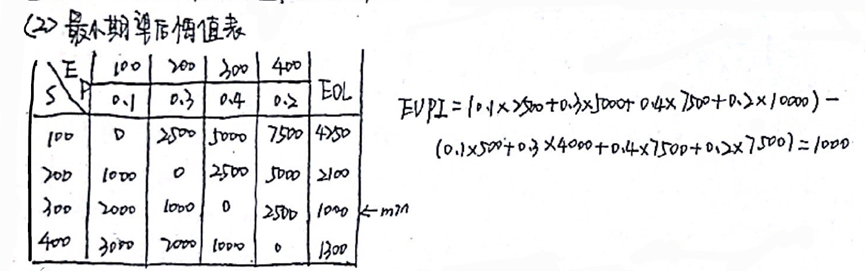 (2) 最小期望后悔值表
E 100 200 300 400
S P 0.1 0.3 0.4 0.2 EOL
100 0 2500 5000 7500 4250
200 1000 0 2500 5000 2100
300 2000 1000 0 2500 1000 ←min
400 3000 2000 1000 0 1300
EVPI=(0.1×2500+0.3×5000+0.4×7500+0.2×10000)-
(0.1×500+0.3×4000+0.4×7500+0.2×7500)=1000